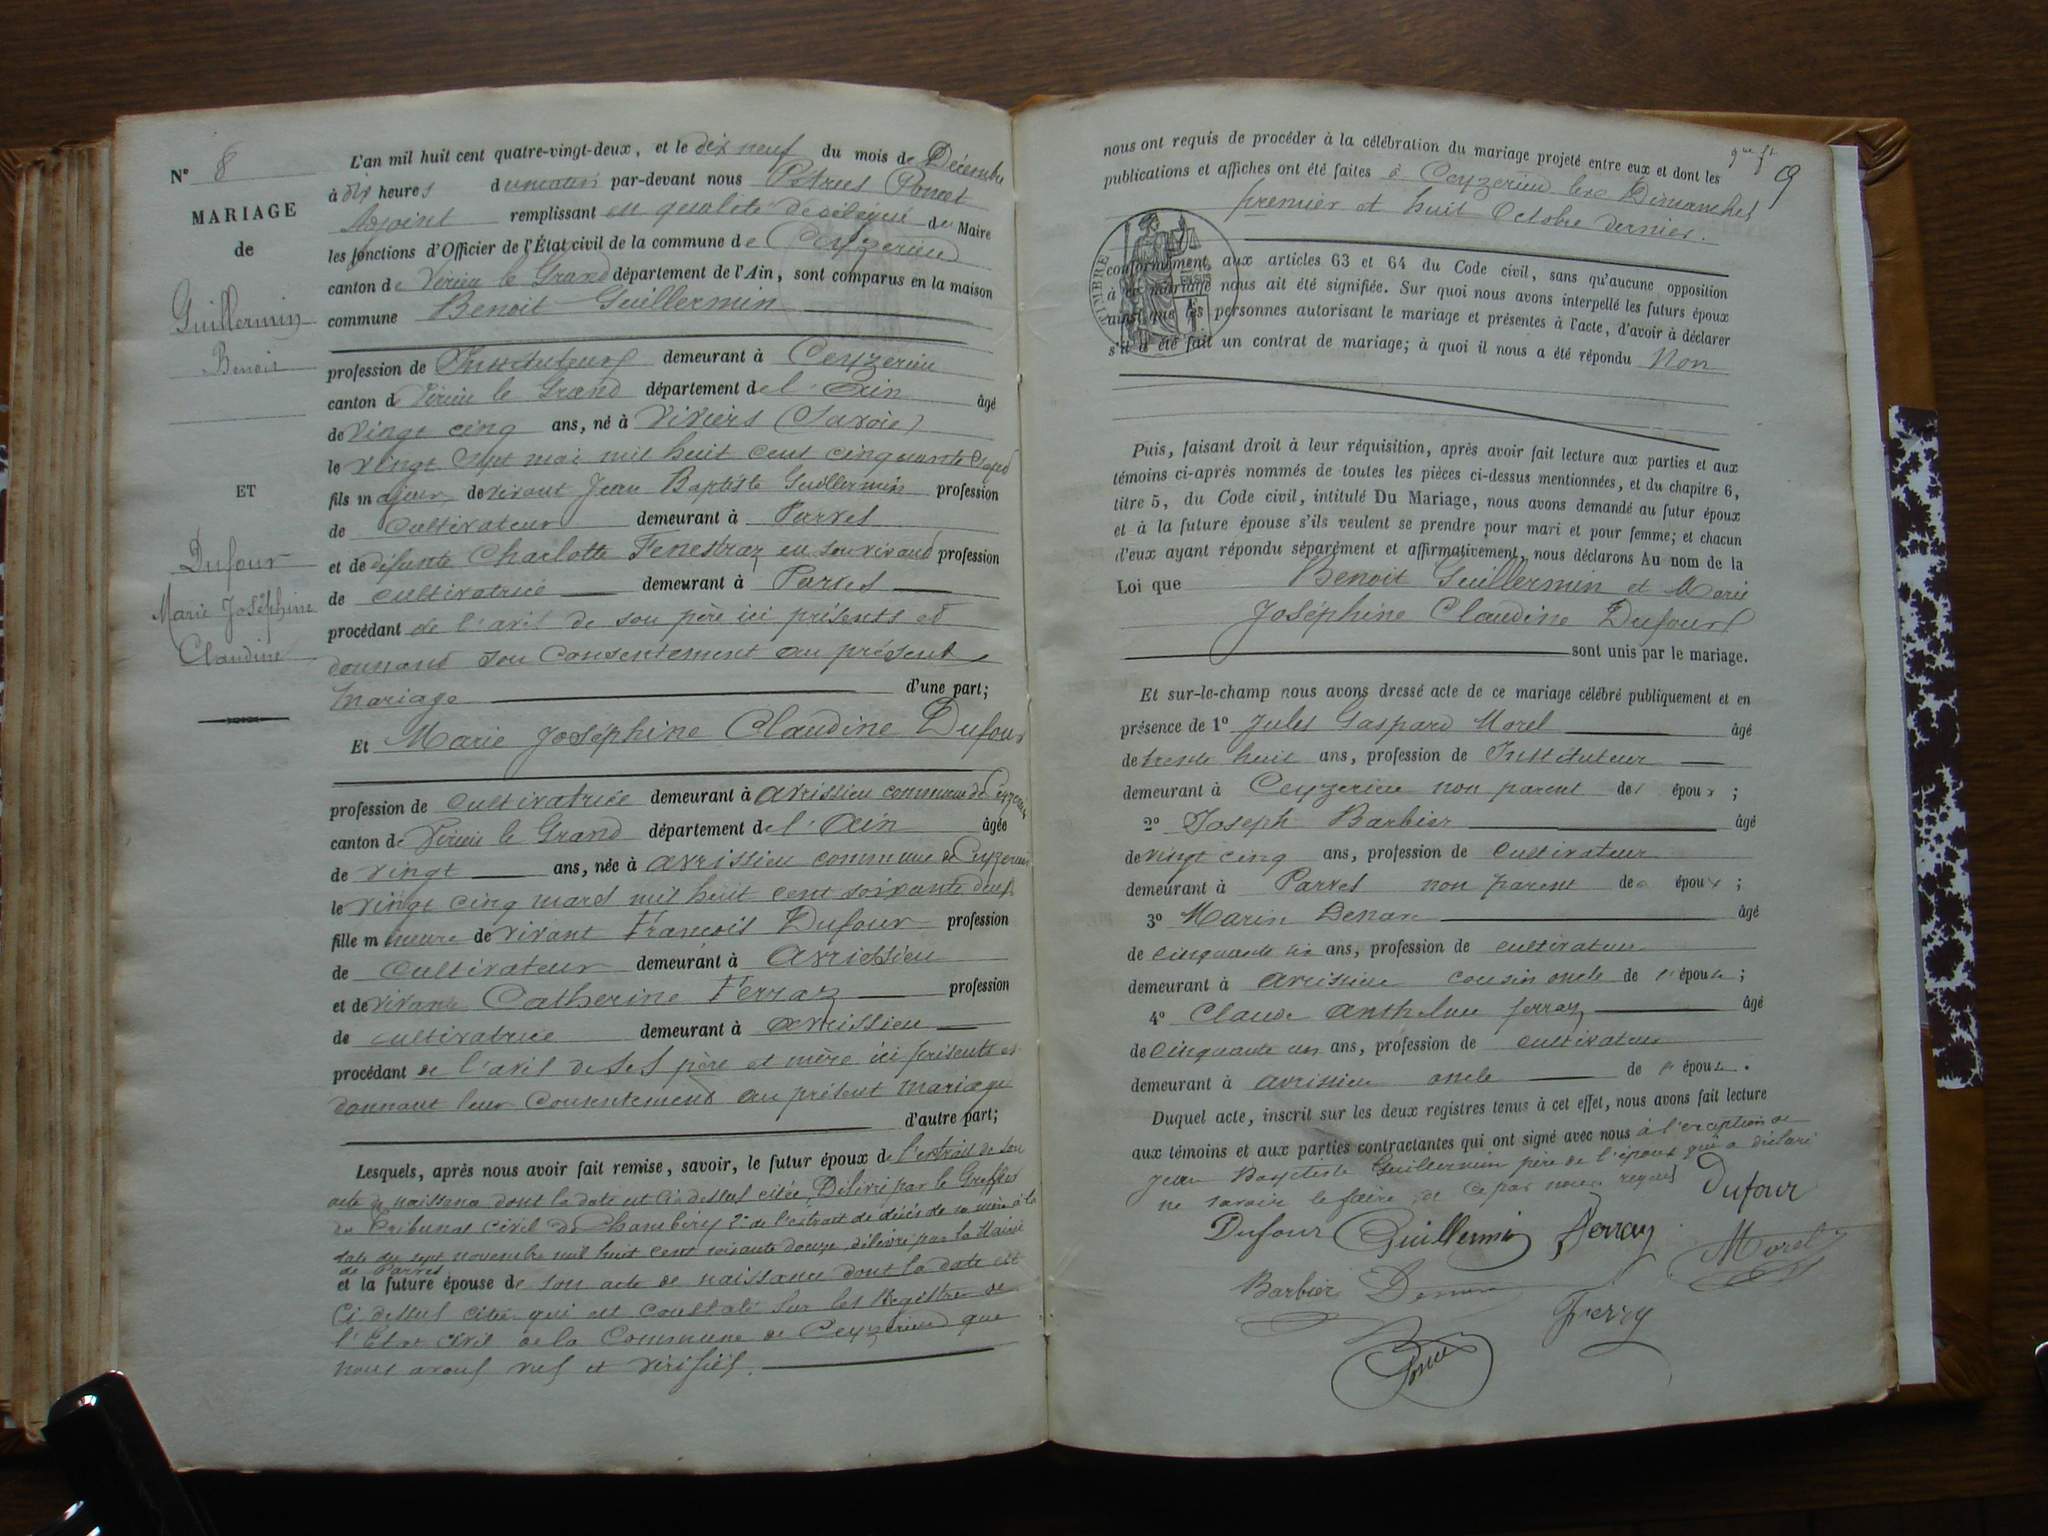 N° 8
MARIAGE
de
Guillermin
Benoit
ET
Dufour
Marie Joséphine
Claudine
L'an mil huit cent quatre-vingt-deux, et le dix neuf du mois de Décembre
à dix heures du matin par-devant nous Petrus Poncet
Adjoint remplissant en qualité de délégué du Maire
les fonctions d'Officier de l'État civil de la commune de Ceyzerieu
canton de Virieu le Grand département de l'Ain, sont comparus en la maison
commune Benoit Guillermin
profession de Instituteur demeurant à Ceyzerieu
canton de Virieu le Grand département de l'Ain âgé
de vingt cinq ans, né à Viviers (Savoie)
le vingt sept mai mil huit cent cinquante sept
fils majeur de vivant Jean Baptiste Guillermin profession
de Cultivateur demeurant à Parves
et de défunte Charlotte Fenestraz en son vivant profession
de cultivatrice demeurant à Parves
procédant de l'avis de son père ici présents et
donnant son Consentement au présent
mariage d'une part;
Et Marie Joséphine Claudine Dufour
profession de Cultivatrice demeurant à avrissieu commune de Ceyzerieu
canton de Virieu le Grand département de l'Ain âgée
de vingt ans, née à avrissieu commune de Ceyzerieu
le vingt cinq mars mil huit cent soixante deux
fille mineure de vivant Francois Dufour profession
de Cultivateur demeurant à Avrissieu
et de vivante Catherine Ferraz profession
de cultivatrice demeurant à avrissieu
procédant de l'avis de ses père et mère ici présents et
donnant leur Consentement au présent mariage
d'autre part;
Lesquels, après nous avoir fait remise, savoir, le futur époux de l'extrait de son
acte de naissance dont la date est ci dessus citée, Délivré par le Greffier
du Tribunal civil de Chambéry 2° de l'extrait de décès de sa mère à la
date du sept novembre mil huit cent soixante douze délivré par la Mairie
de Parves
et la future épouse de son acte de naissance dont la date est
Ci dessus citée qui est constaté sur les Registres de
l'Etat civil de la Commune de Ceyzerieu que
nous avons vus et vérifiés.
9
nous ont requis de procéder à la célébration du mariage projeté entre eux et dont les
publications et affiches ont été faites à Ceyzerieu les Dimanches
premier et huit Octobre dernier.
TIMBRE
conformément aux articles 63 et 64 du Code civil, sans qu'aucune opposition
à ce mariage nous ait été signifiée. Sur quoi nous avons interpellé les futurs époux
ainsi que les personnes autorisant le mariage et présentes à l'acte, d'avoir à déclarer
s'il a été fait un contrat de mariage; à quoi il nous a été répondu Non
Puis, faisant droit à leur réquisition, après avoir fait lecture aux parties et aux
témoins ci-après nommés de toutes les pièces ci-dessus mentionnées, et du chapitre 6,
titre 5, du Code civil, intitulé Du Mariage, nous avons demandé au futur époux
et à la future épouse s'ils veulent se prendre pour mari et pour femme; et chacun
d'eux ayant répondu séparément et affirmativement, nous déclarons Au nom de la
Loi que Benoit Guillermin et Marie
Joséphine Claudine Dufour
sont unis par le mariage.
Et sur-le-champ nous avons dressé acte de ce mariage célébré publiquement et en
présence de 1° Jules Gaspard Morel âgé
de trente huit ans, profession de Instituteur
demeurant à Ceyzerieu non parent des époux;
2° Joseph Barbier âgé
de vingt cinq ans, profession de Cultivateur
demeurant à Parves non parent des époux;
3° Marin Denare âgé
de cinquante six ans, profession de cultivateur
demeurant à avrissieu cousin oncle de l'épouse;
4° Claude Anthelme ferraz âgé
de Cinquante un ans, profession de cultivateur
demeurant à avrissieu oncle de l'épouse.
Duquel acte, inscrit sur les deux registres tenus à cet effet, nous avons fait lecture
aux témoins et aux parties contractantes qui ont signé avec nous à l'exception de
Jean Baptiste Guillermin père de l'époux qui a déclaré
ne savoir le faire de ce par nous requis Dufour
Dufour Guillermin Ferraz Morel
Barbier Denare Ferraz
Poncet